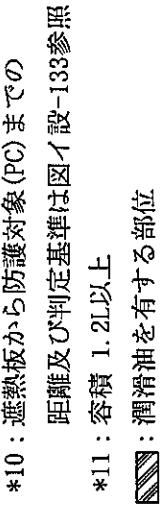 *10：遮熱板から防護対象(PC)までの
距離及び判定基準は図イ設-133参照
*11：容積 1.2L以上
：潤滑油を有する部位